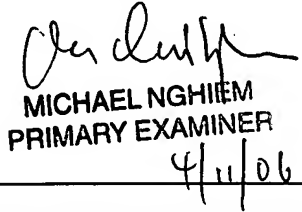 MICHAEL NGHIEM
PRIMARY EXAMINER
4/11/06